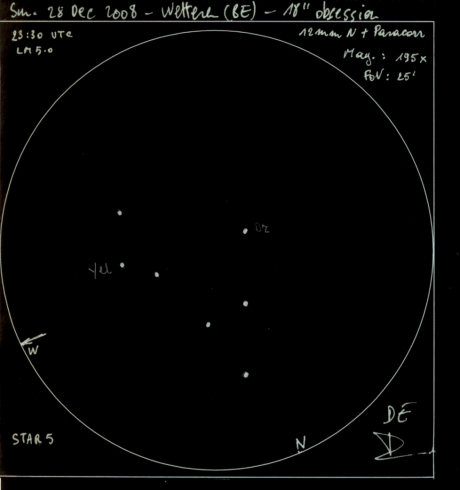 Sun. 28 Dec 2008 - Wetteren (BE) - 18" obsession
23:30 UTC
LM 5.0
12mm N + Paracorr
Mag. : 195x
FoV : 25'
Or
Yel
W
STAR 5
N
DE